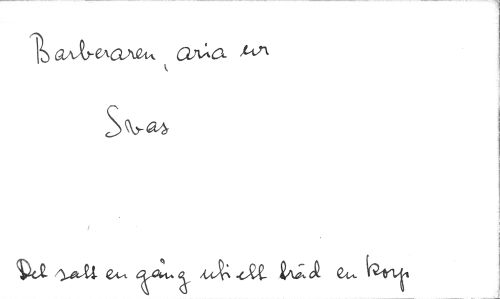 Barberaren, aria ur
Svas
Det satt en gång uti ett träd en korp